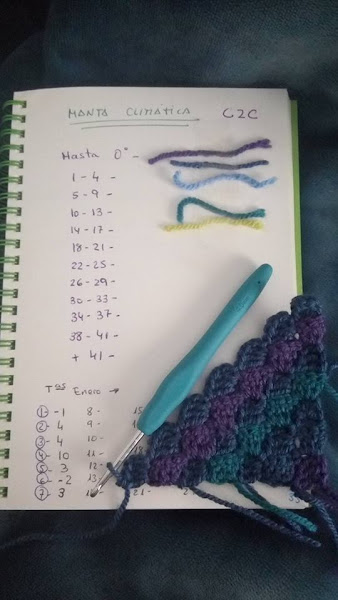 MANTA CLIMÁTICA C2C
Hasta 0° -
1 - 4 -
5 - 9 -
10 - 13 -
14 - 17 -
18 - 21 -
22 - 25 -
26 - 29 -
30 - 33 -
34 - 37 -
38 - 41 -
+ 41 -
Tas Enero →
1 - -1 8 - 15
2 4 9 -
3 4 10 -
4 10 11 -
5 3 12 -
6 -2 13
7 3 21 -